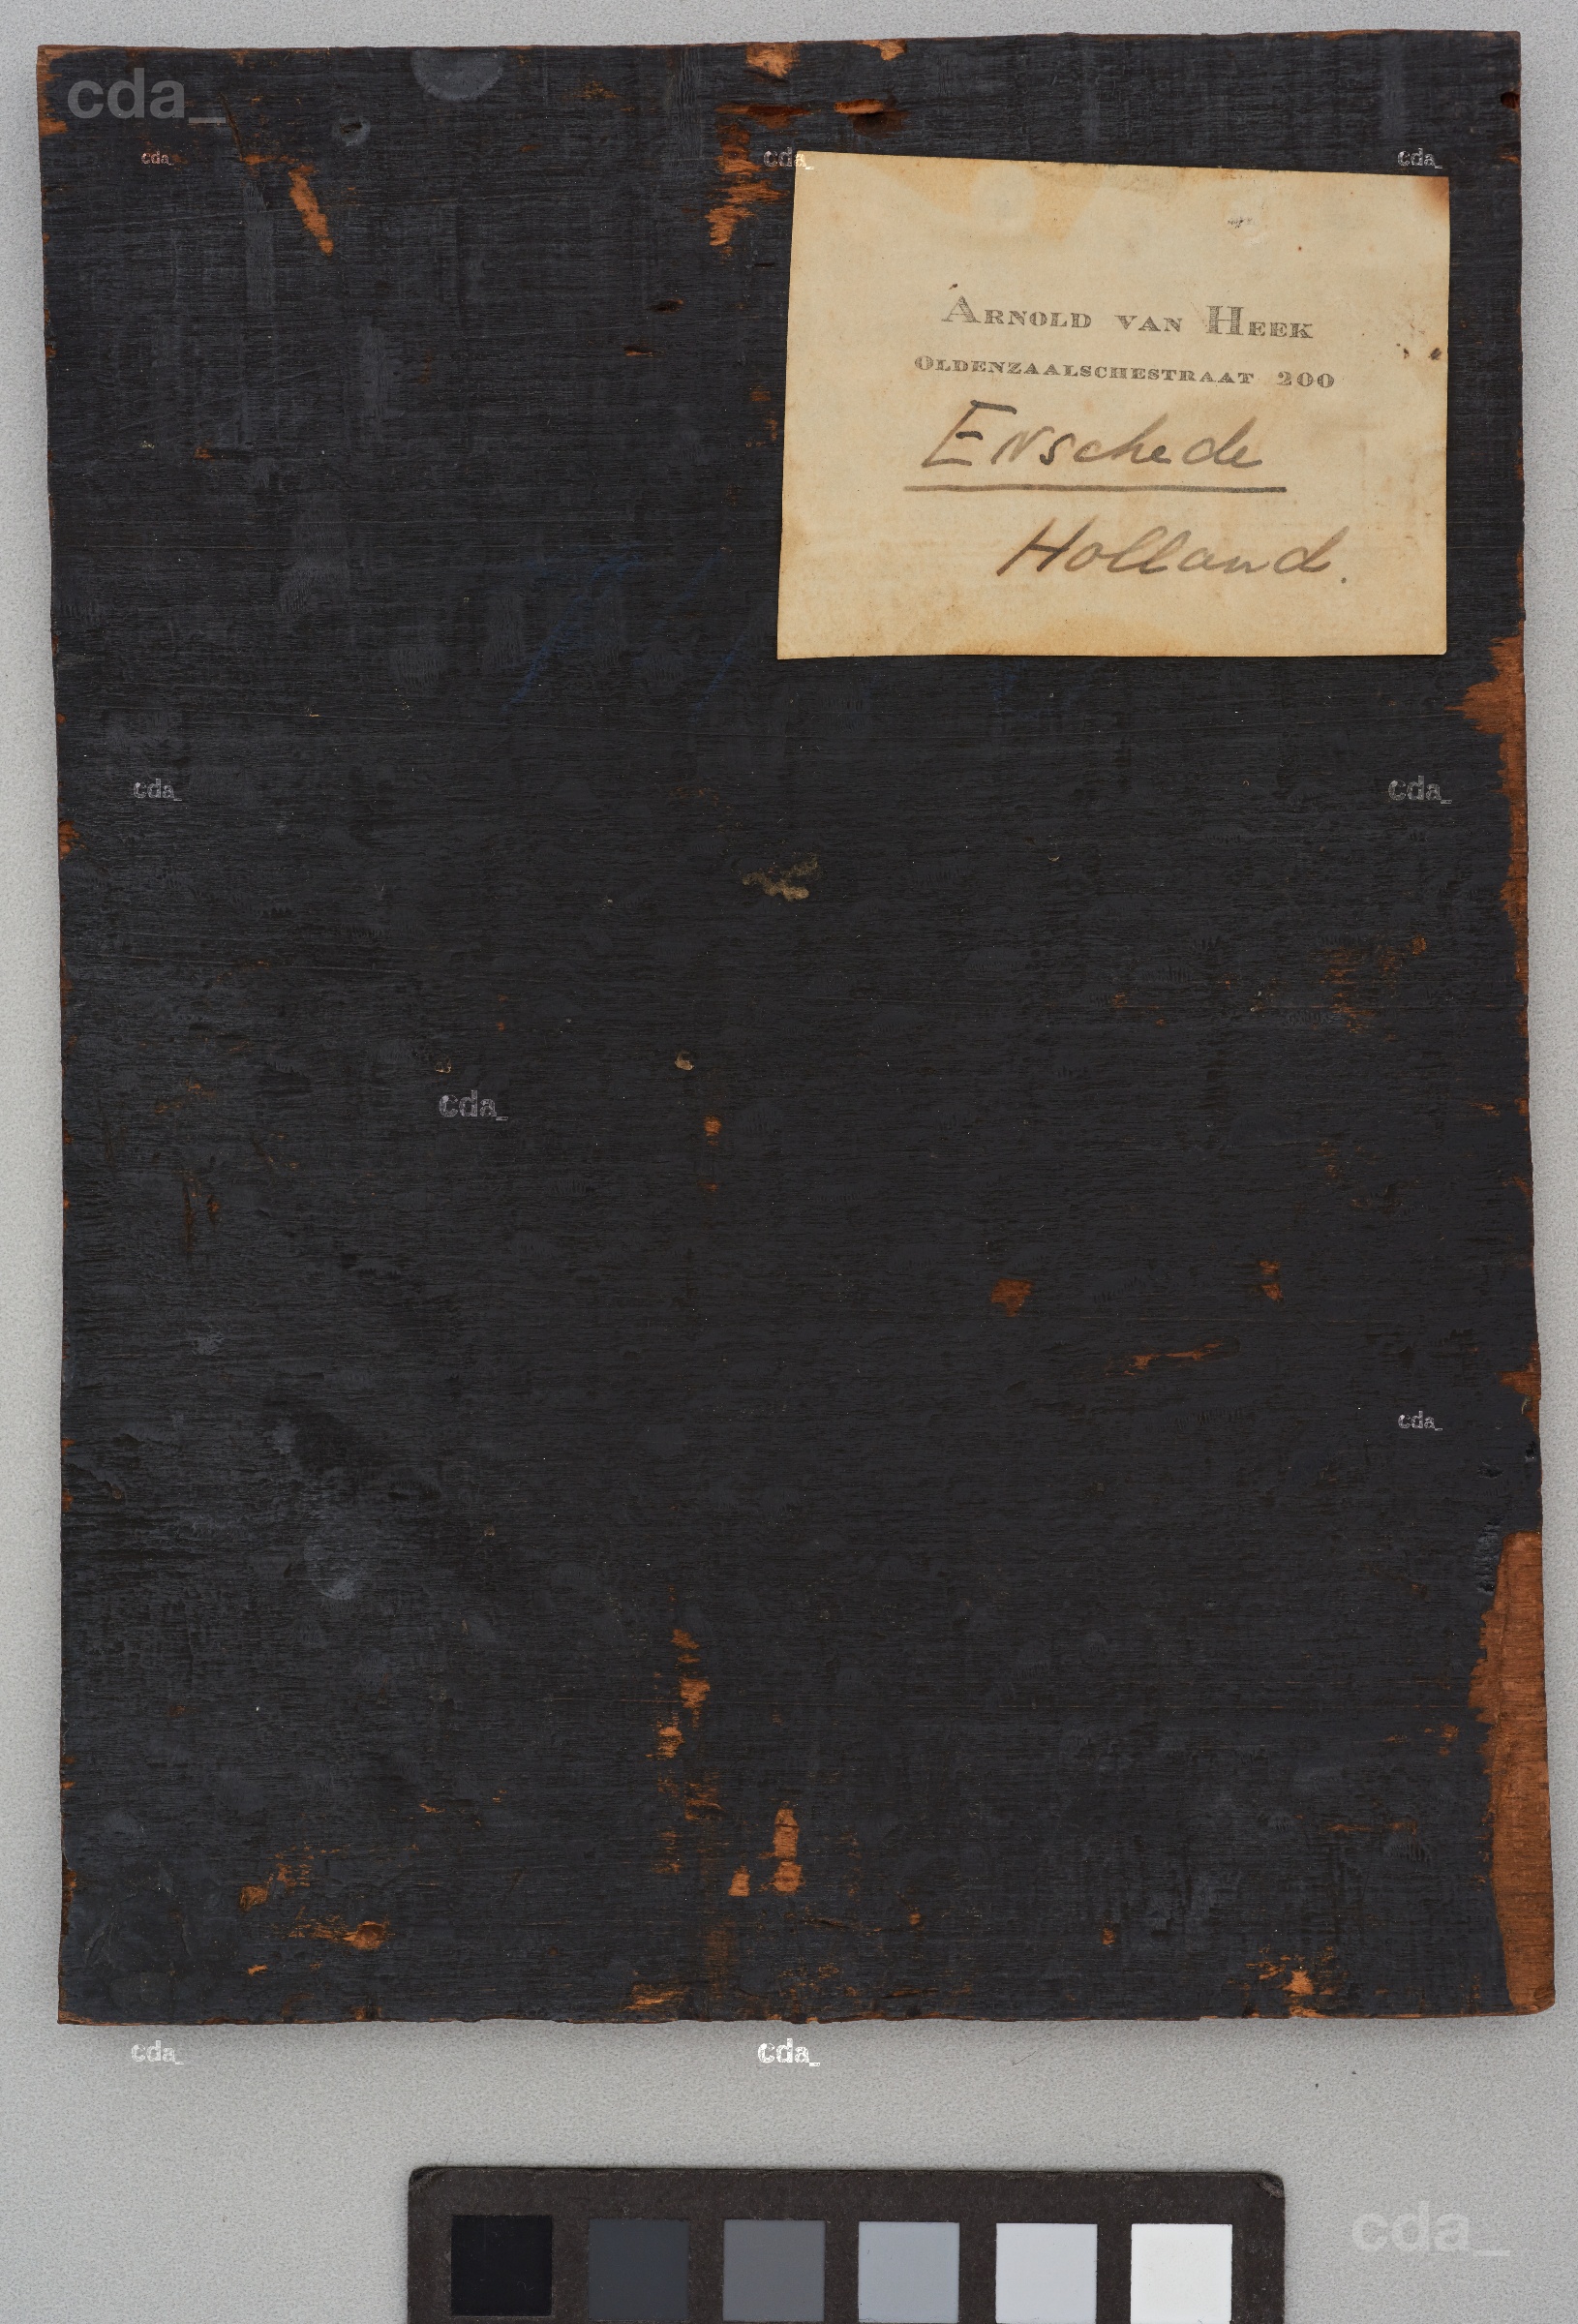 cda_
cda_
cda_
cda_
ARNOLD VAN HEEK
OLDENZAALSCHESTRAAT 200
Enschede
Holland.
cda_
cda_
cda_
cda_
cda_
cda_
cda_